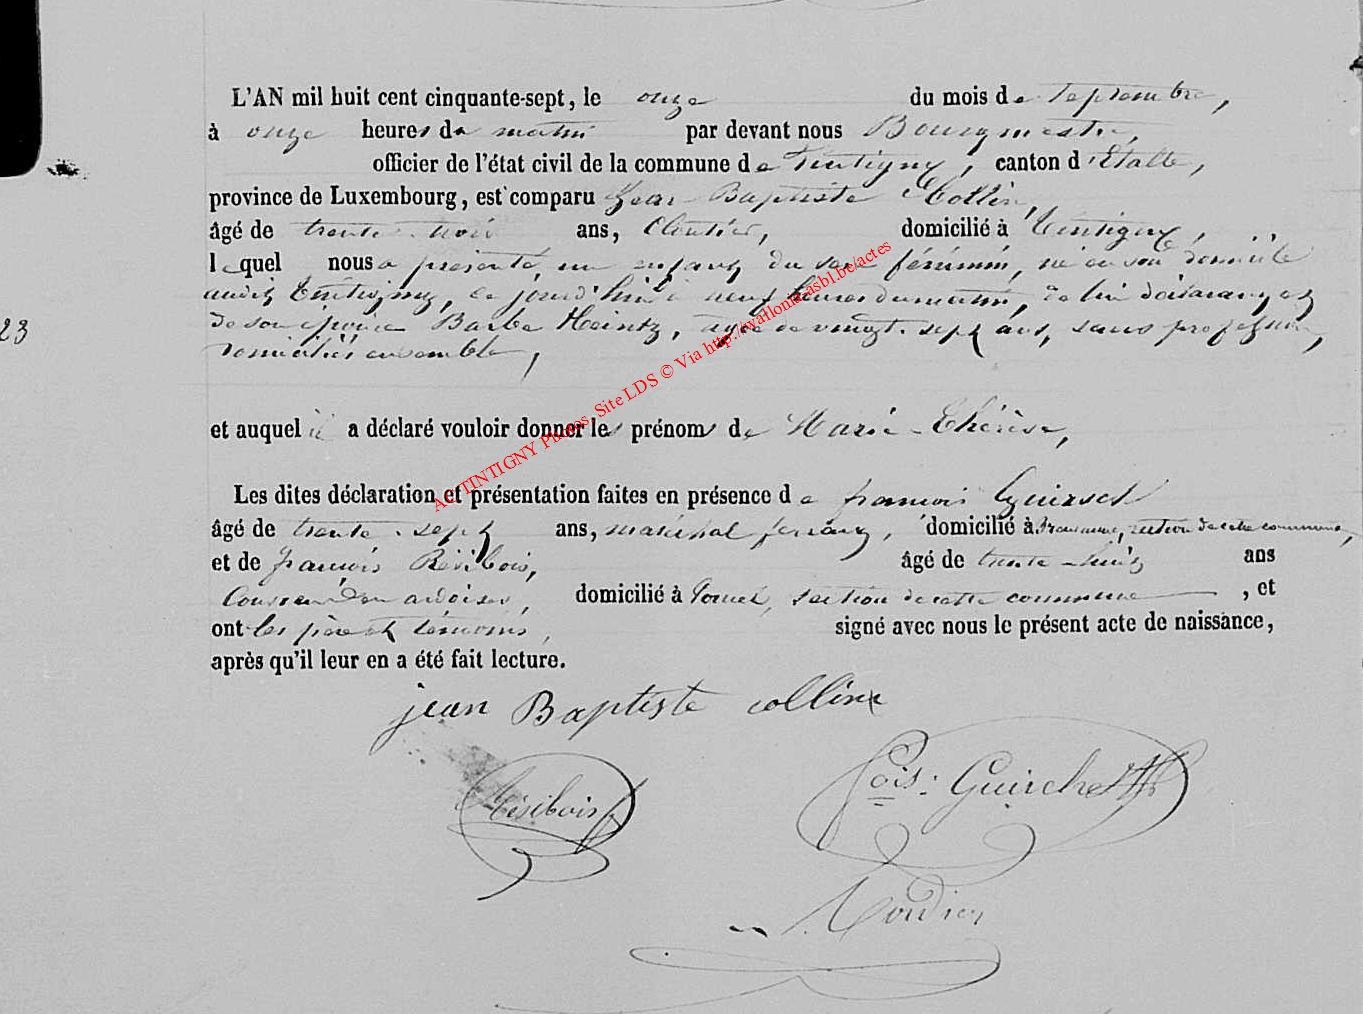 L'AN mil huit cent cinquante-sept, le onze du mois de septembre,
à onze heures du matin par devant nous Bourgmestre,
officier de l'état civil de la commune de Tintigny, canton d'Etalle,
province de Luxembourg, est comparu Jean Baptiste Collin,
âgé de trente trois ans, Cloutier, domicilié à Tintigny,
lequel nous a présenté un enfant du sexe féminin, né en son domicile
audit Tintigny, ce jourd'hui à neuf heures du matin, de lui déclarant et
23
de son épouse Barbe Heintz, âgée de vingt-sept ans, sans profession,
domiciliés ensemble,
et auquel il a déclaré vouloir donner les prénoms de Marie-Thérèse,
Les dites déclaration et présentation faites en présence de françois Guirsch
âgé de trente-sept ans, maréchal ferrant, domicilié à section de cette commune,
et de françois Résibois, âgé de trente-huit ans
Couvreur en ardoises, domicilié à section de cette commune, et
ont les père et témoins, signé avec nous le présent acte de naissance,
après qu'il leur en a été fait lecture.
jean Baptiste collin
Résibois
fois: Guirche
AC TINTIGNY Photos. Site LDS © Via http://wallonia-asbl.be/actes